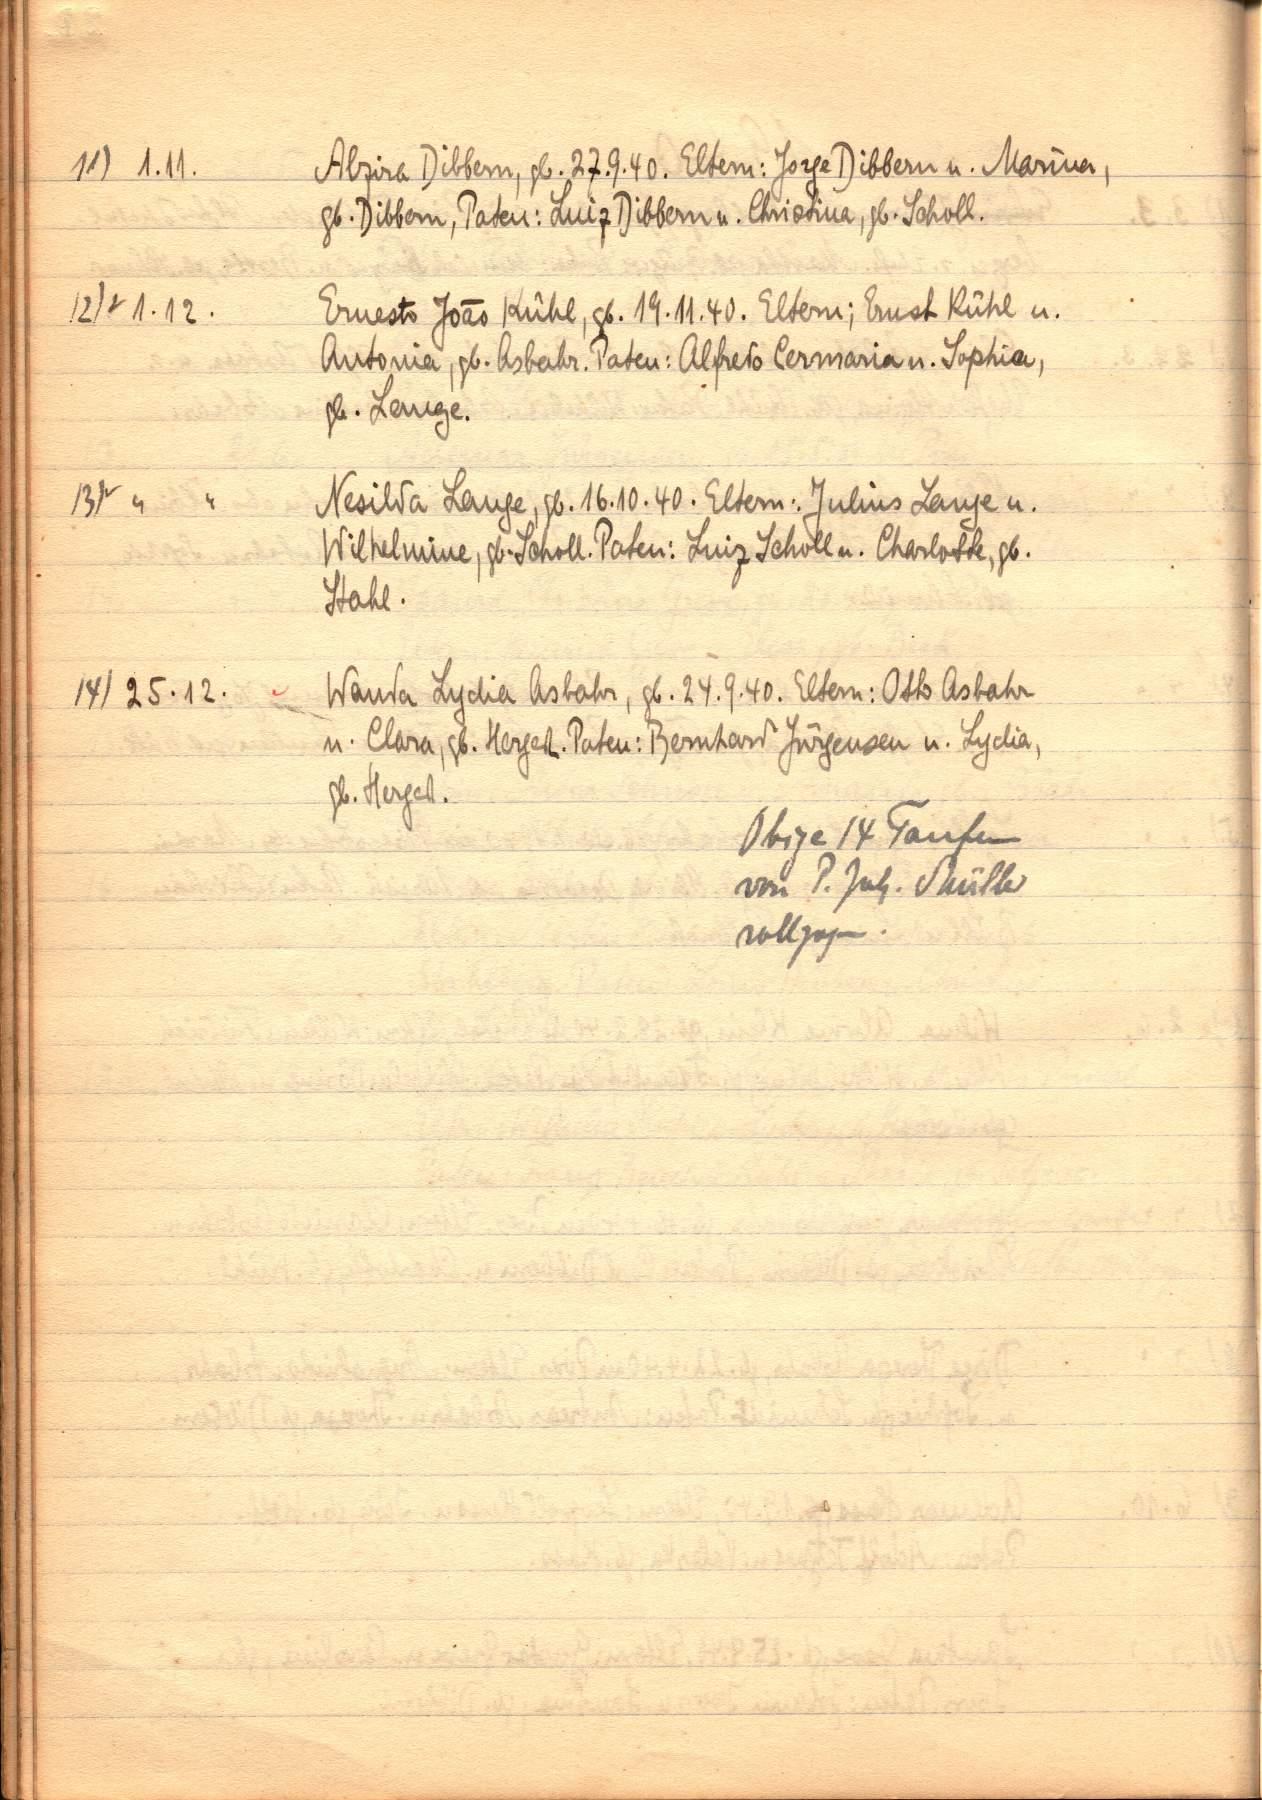 11) 1.11. Alzira Dibbern, gb. 27.9.40. Eltern: Jorge Dibbern u. Marina,
gb. Dibbern, Paten: Luiz Dibbern u. Christina, gb. Scholl.
12) 1.12. Ernesto João Kühl, gb. 19.11.40. Eltern; Ernst Kühl u.
Antonia, gb. Asbahr. Paten: Alfredo Cermaria u. Sophia,
gb. Lange.
13) " " Nesilda Lange, gb. 16.10.40. Eltern: Julius Lange u.
Wilhelmine, gb. Scholl. Paten: Luiz Scholl u. Charlotte, gb.
Stahl.
14) 25.12. Wanda Lydia Asbahr, gb. 24.9.40. Eltern: Otto Asbahr
u. Clara, gb. Herget. Paten: Bernhard Jürgensen u. Lydia,
gb. Herget.
Obige 14 Taufen
von P. Joh. Müller
vollzogen.